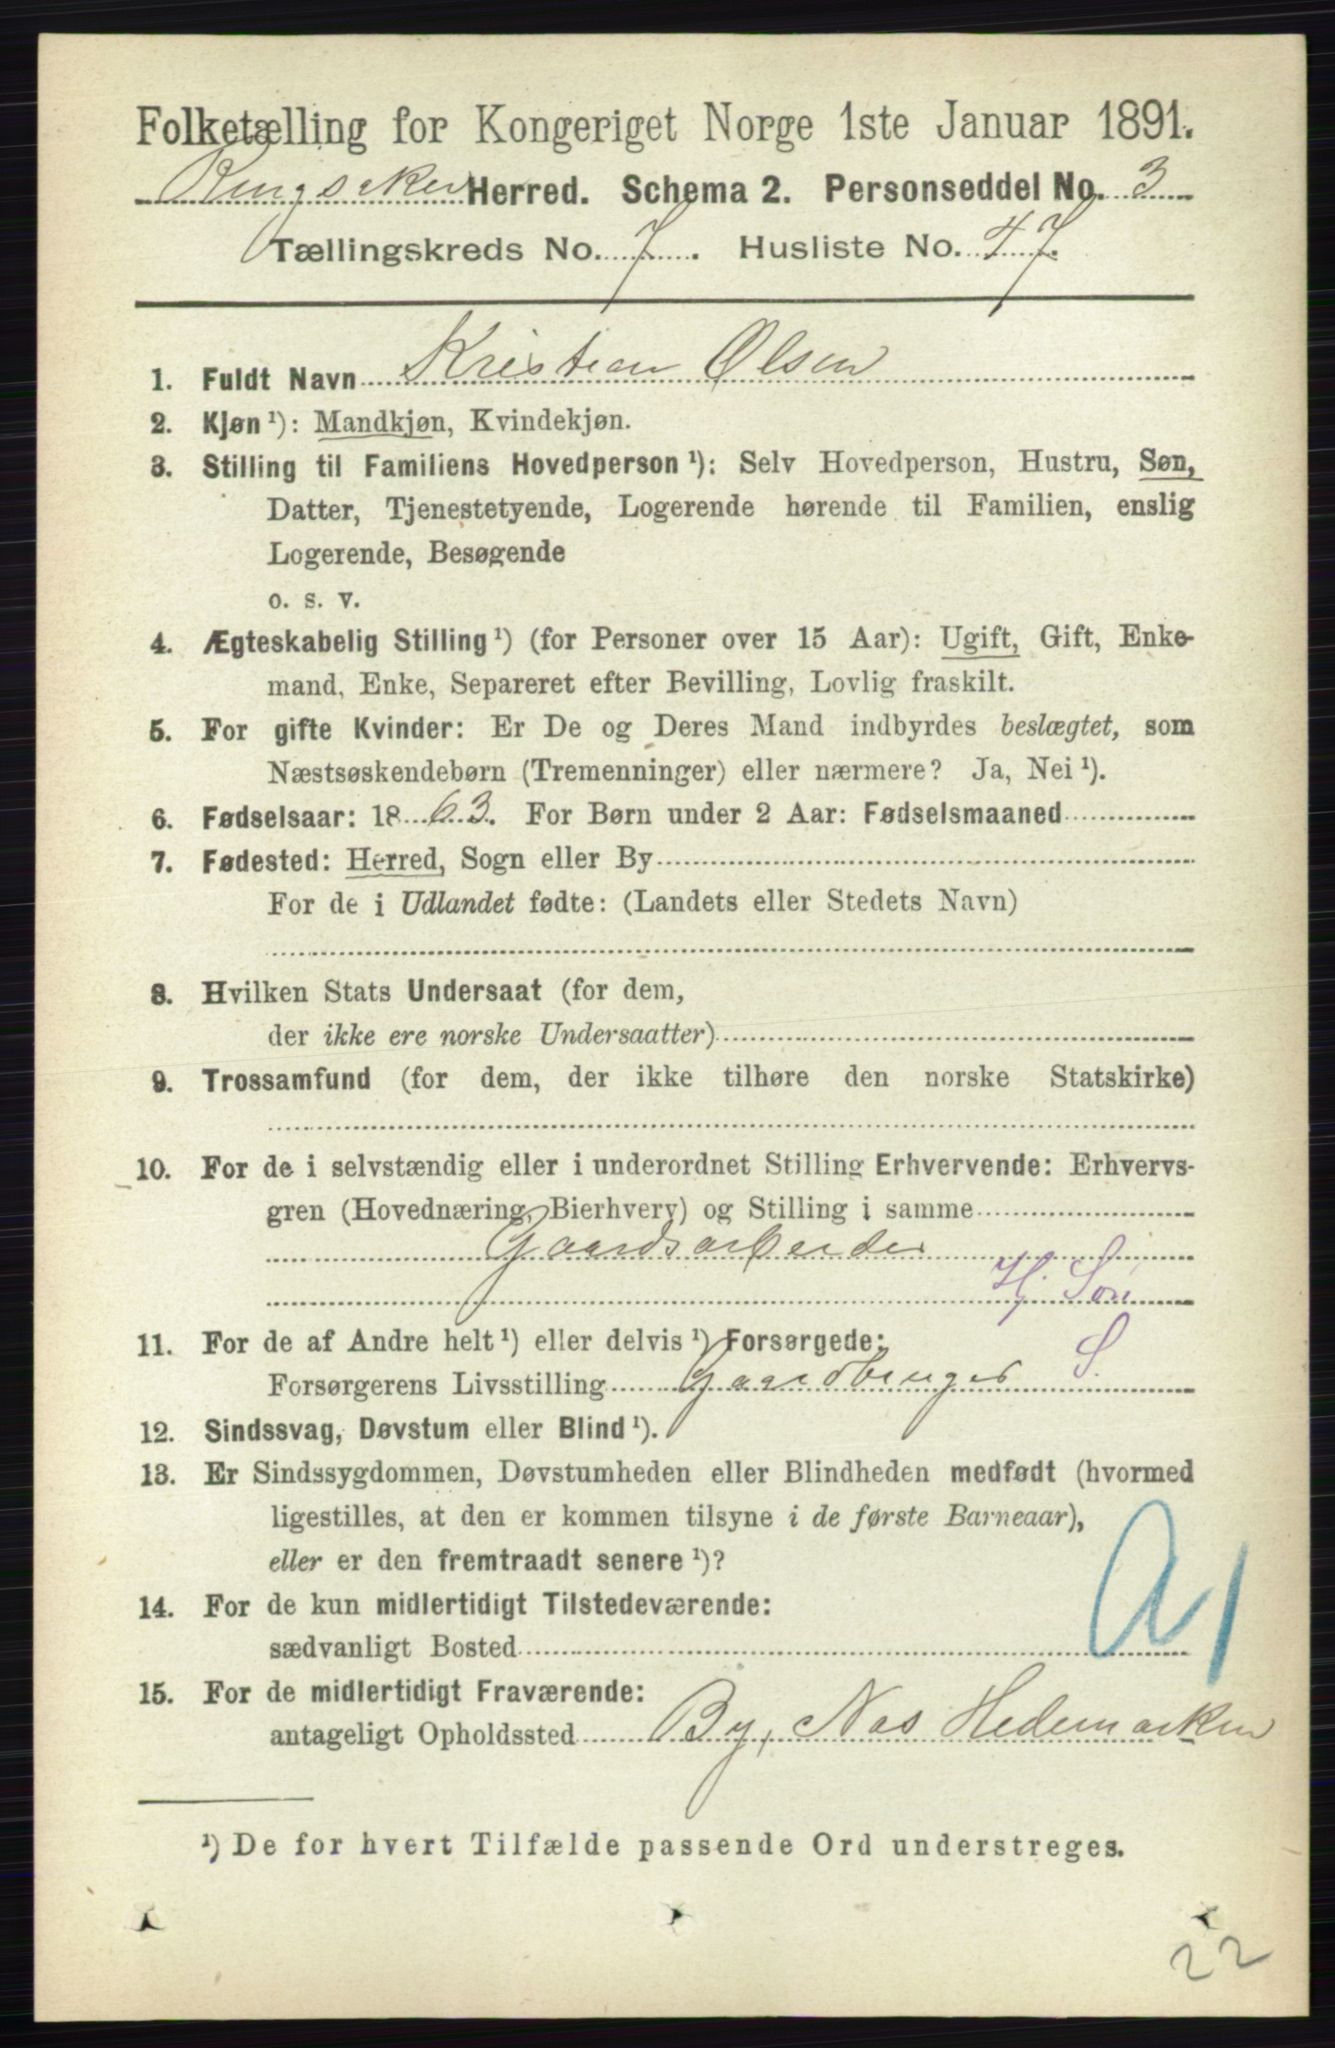 Folketælling for Kongeriget Norge 1ste Januar 1891.
Ringsaker Herred. Schema 2. Personseddel No. 3
Tællingskreds No. 7. Husliste No. 47.
1. Fuldt Navn Kristian Olsen
2. Kjøn ¹): Mandkjøn, Kvindekjøn.
3. Stilling til Familiens Hovedperson ¹): Selv Hovedperson, Hustru, Søn,
Datter, Tjenestetyende, Logerende hørende til Familien, enslig
Logerende, Besøgende
o. s. v.
4. Ægteskabelig Stilling ¹) (for Personer over 15 Aar): Ugift, Gift, Enke-
mand, Enke, Separeret efter Bevilling, Lovlig fraskilt.
5. For gifte Kvinder: Er De og Deres Mand indbyrdes beslægtet, som
Næstsøskendebørn (Tremenninger) eller nærmere? Ja, Nei ¹).
6. Fødselsaar: 1863. For Børn under 2 Aar: Fødselsmaaned
7. Fødested: Herred, Sogn eller By
For de i Udlandet fødte: (Landets eller Stedets Navn)
8. Hvilken Stats Undersaat (for dem,
der ikke ere norske Undersaatter)
9. Trossamfund (for dem, der ikke tilhøre den norske Statskirke)
10. For de i selvstændig eller i underordnet Stilling Erhvervende: Erhvervs-
gren (Hovednæring, Bierhverv) og Stilling i samme
Gaardsarbeider
Hj. Søn
11. For de af Andre helt ¹) eller delvis ¹) Forsørgede:
Forsørgerens Livsstilling Gaardbruger S.
12. Sindssvag, Døvstum eller Blind ¹).
13. Er Sindssygdommen, Døvstumheden eller Blindheden medfødt (hvormed
ligestilles, at den er kommen tilsyne i de første Barneaar),
eller er den fremtraadt senere ¹)?
14. For de kun midlertidigt Tilstedeværende:
sædvanligt Bosted
15. For de midlertidigt Fraværende:
antageligt Opholdssted By, Nes Hedemarken
¹) De for hvert Tilfælde passende Ord understreges.
22